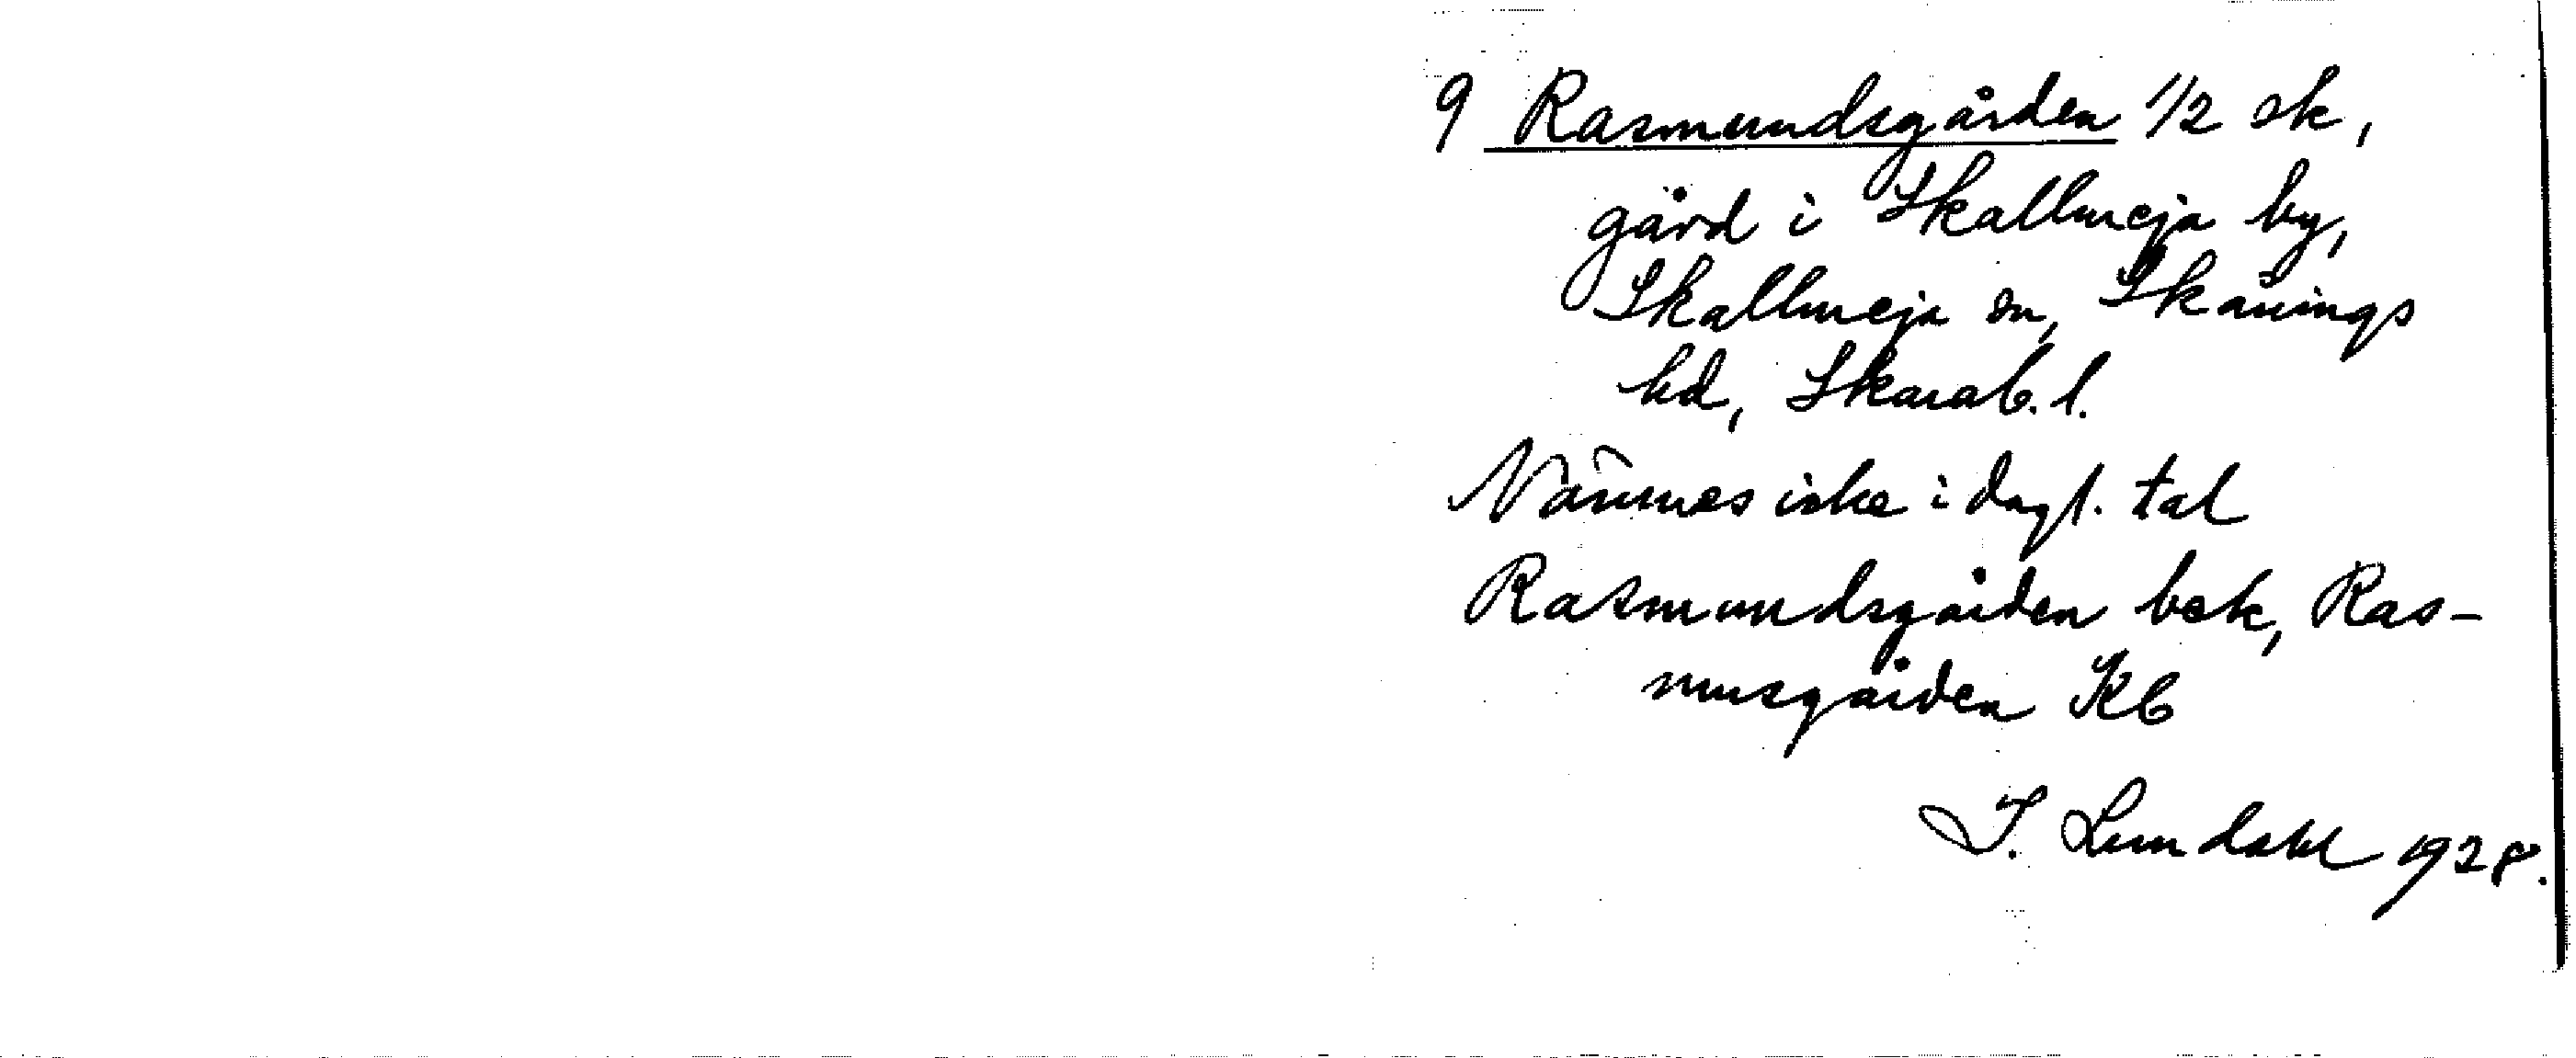 9 Rasmundsgården 1/2 sk,
gård i Skallmeja by,
Skallmeja sn, Skånings
hd, Skarab. l.
Nämnes icke i dagl. tal
Rasmundsgården bek, Ras-
musgården Kb
I. Lundahl 1928.